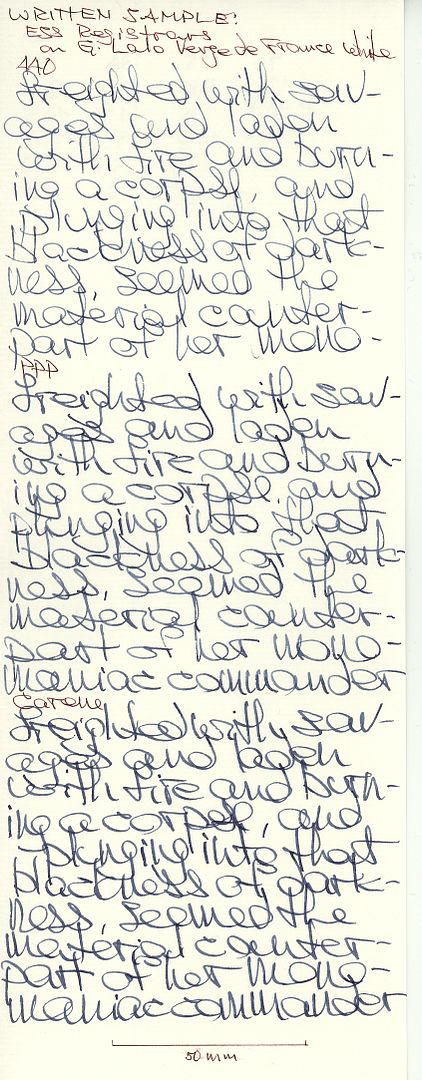 WRITTEN SAMPLE:
ESS Registrars
on G. Lalo Verge de France White
440
freighted with sav-
ages and laden
with fire and burn-
ing a corpse, and
plunging into that
blackness of dark-
ness, seemed the
material counter-
part of her mono-
PPP
freighted with sav-
ages and laden
with fire and burn-
ing a corpse, and
plunging into that
blackness of dark-
ness, seemed the
material counter-
part of her mono-
maniac commander
Carene
freighted with sav-
ages and laden
with fire and burn-
ing a corpse, and
plunging into that
blackness of dark-
ness, seemed the
material counter-
part of her mono-
maniac commander
50 mm